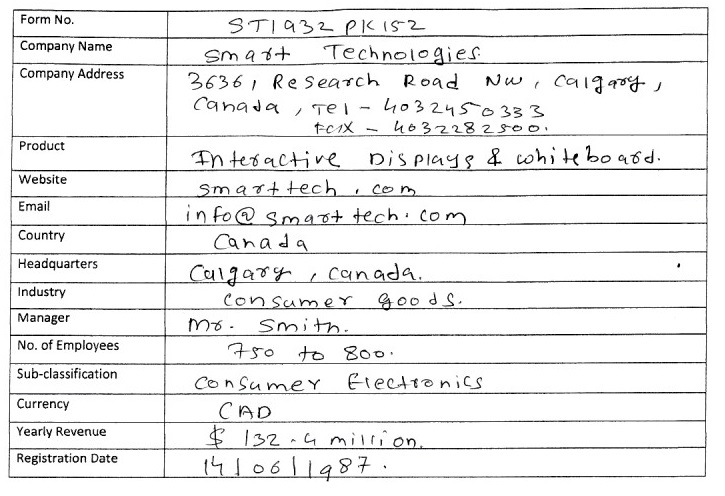 Form No. STI932PK152
Company Name Smart Technologies.
Company Address 3636, Research Road NW, Calgary,
Canada, Tel - 4032450333
FAX - 4032282500.
Product Interactive Displays & whiteboard.
Website smarttech.com
Email info@smarttech.com
Country Canada
Headquarters Calgary, Canada.
Industry Consumer goods.
Manager Mr. Smith.
No. of Employees 750 to 800.
Sub-classification Consumer Electronics
Currency CAD
Yearly Revenue $ 132.4 million.
Registration Date 14/06/1987.